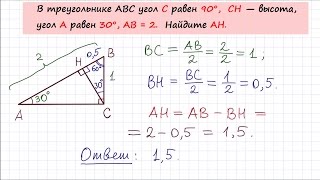 В треугольнике ABC угол C равен 90°, CH — высота,
угол A равен 30°, AB = 2. Найдите AH.
2
0,5
B
H
60°
1
30°
30°
A
C
BC = AB/2 = 2/2 = 1;
BH = BC/2 = 1/2 = 0,5.
AH = AB - BH =
= 2 - 0,5 = 1,5.
Ответ: 1,5.